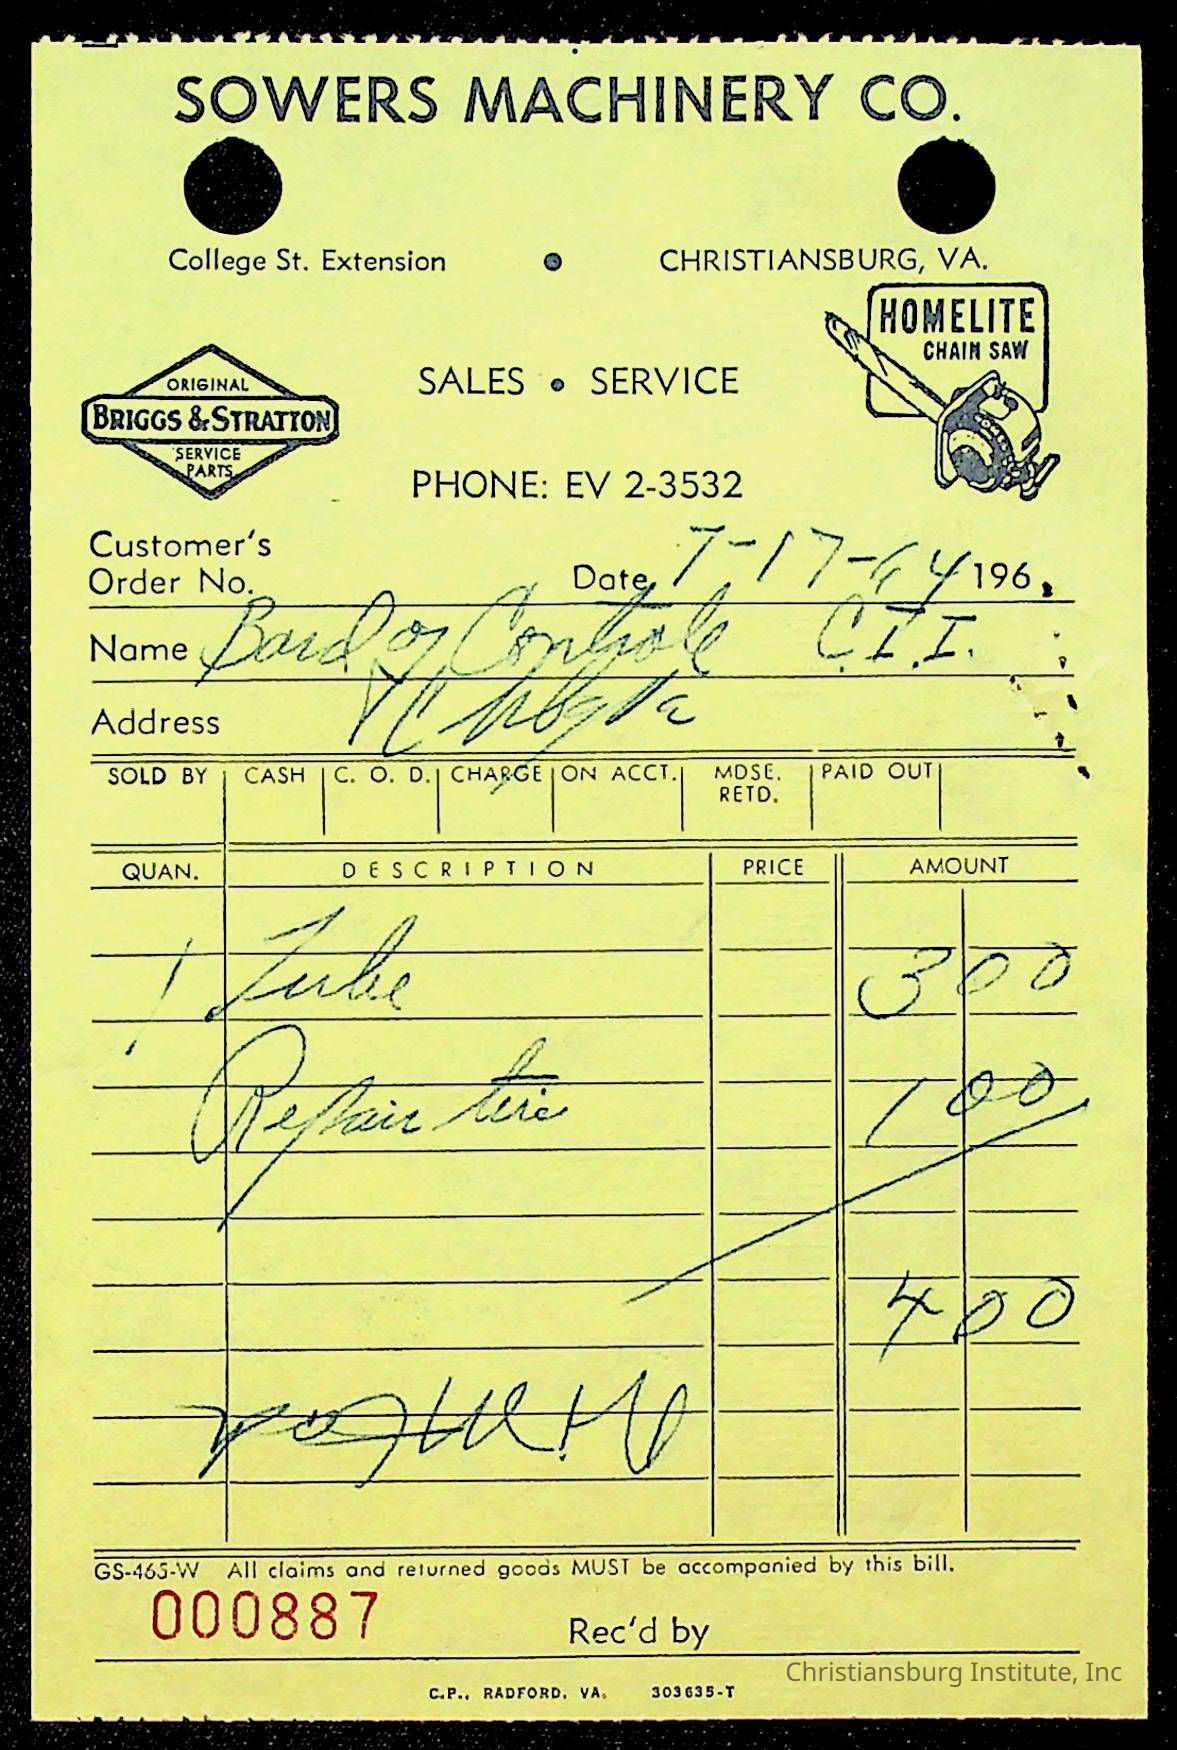 SOWERS MACHINERY CO.
College St. Extension • CHRISTIANSBURG, VA.
HOMELITE
CHAIN SAW
ORIGINAL
BRIGGS & STRATTON
SERVICE
PARTS
SALES • SERVICE
PHONE: EV 2-3532
Customer's
Order No. Date 7-17-64 196
Name Board of Controle C.I.I.
Address
SOLD BY CASH C. O. D. CHARGE ON ACCT. MDSE. RETD. PAID OUT
QUAN. DESCRIPTION PRICE AMOUNT
1 Tube 3 00
Repair tire 1 00
4 00
GS-465-W All claims and returned goods MUST be accompanied by this bill.
000887 Rec'd by
Christiansburg Institute, Inc
C.P., RADFORD, VA. 303635-T